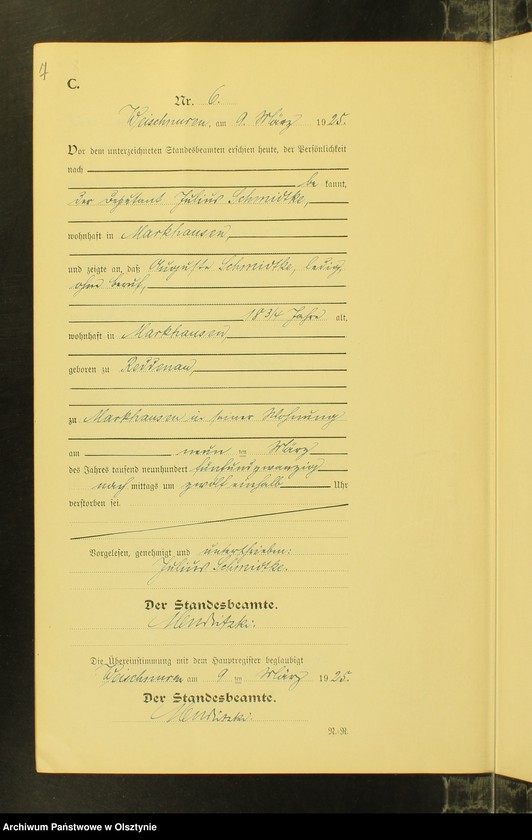 4
C.
Nr. 6.
Weischnuren, am 9. März 1925.
Vor dem unterzeichneten Standesbeamten erschien heute, der Persönlichkeit
nach
be kannt,
der Deputant Julius Schmidtke,
wohnhaft in Markhausen,
und zeigte an, daß Auguste Schmidtke, ledig,
ohne Beruf,
18 3/4 Jahre alt,
wohnhaft in Markhausen
geboren zu Reddenau,
zu Markhausen in seiner Wohnung
am neun ten März
des Jahres tausend neunhundert fünfundzwanzig
nach mittags um zwölf einhalb Uhr
verstorben sei.
Vorgelesen, genehmigt und unterschrieben:
Julius Schmidtke.
Der Standesbeamte.
Die Übereinstimmung mit dem Hauptregister beglaubigt
Weischnuren am 9 ten März 1925.
Der Standesbeamte.
N.-R.
Archiwum Państwowe w Olsztynie